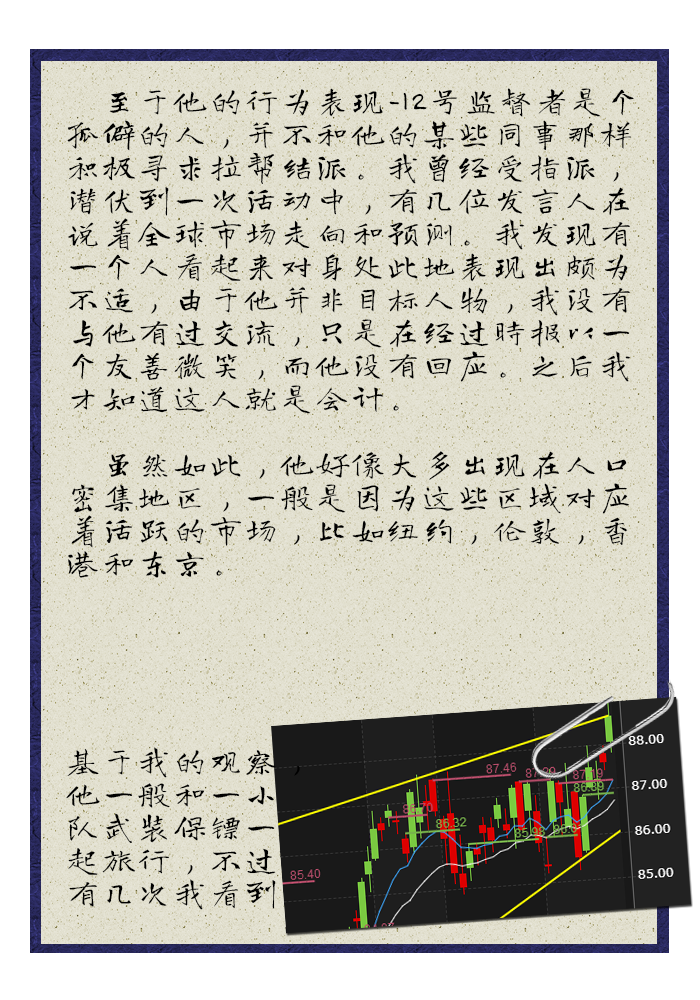 至于他的行为表现-12号监督者是个
孤僻的人，并不和他的某些同事那样
积极寻求拉帮结派。我曾经受指派，
潜伏到一次活动中，有几位发言人在
说着全球市场走向和预测。我发现有
一个人看起来对身处此地表现出颇为
不适，由于他并非目标人物，我没有
与他有过交流，只是在经过時报以一
个友善微笑，而他没有回应。之后我
才知道这人就是会计。
虽然如此，他好像大多出现在人口
密集地区，一般是因为这些区域对应
着活跃的市场，比如纽约，伦敦，香
港和东京。
基于我的观察，
他一般和一小
队武装保镖一
起旅行，不过
有几次我看到
88.00
87.46
87.00
86.89
86.32
86.00
85.98
85.40
85.00